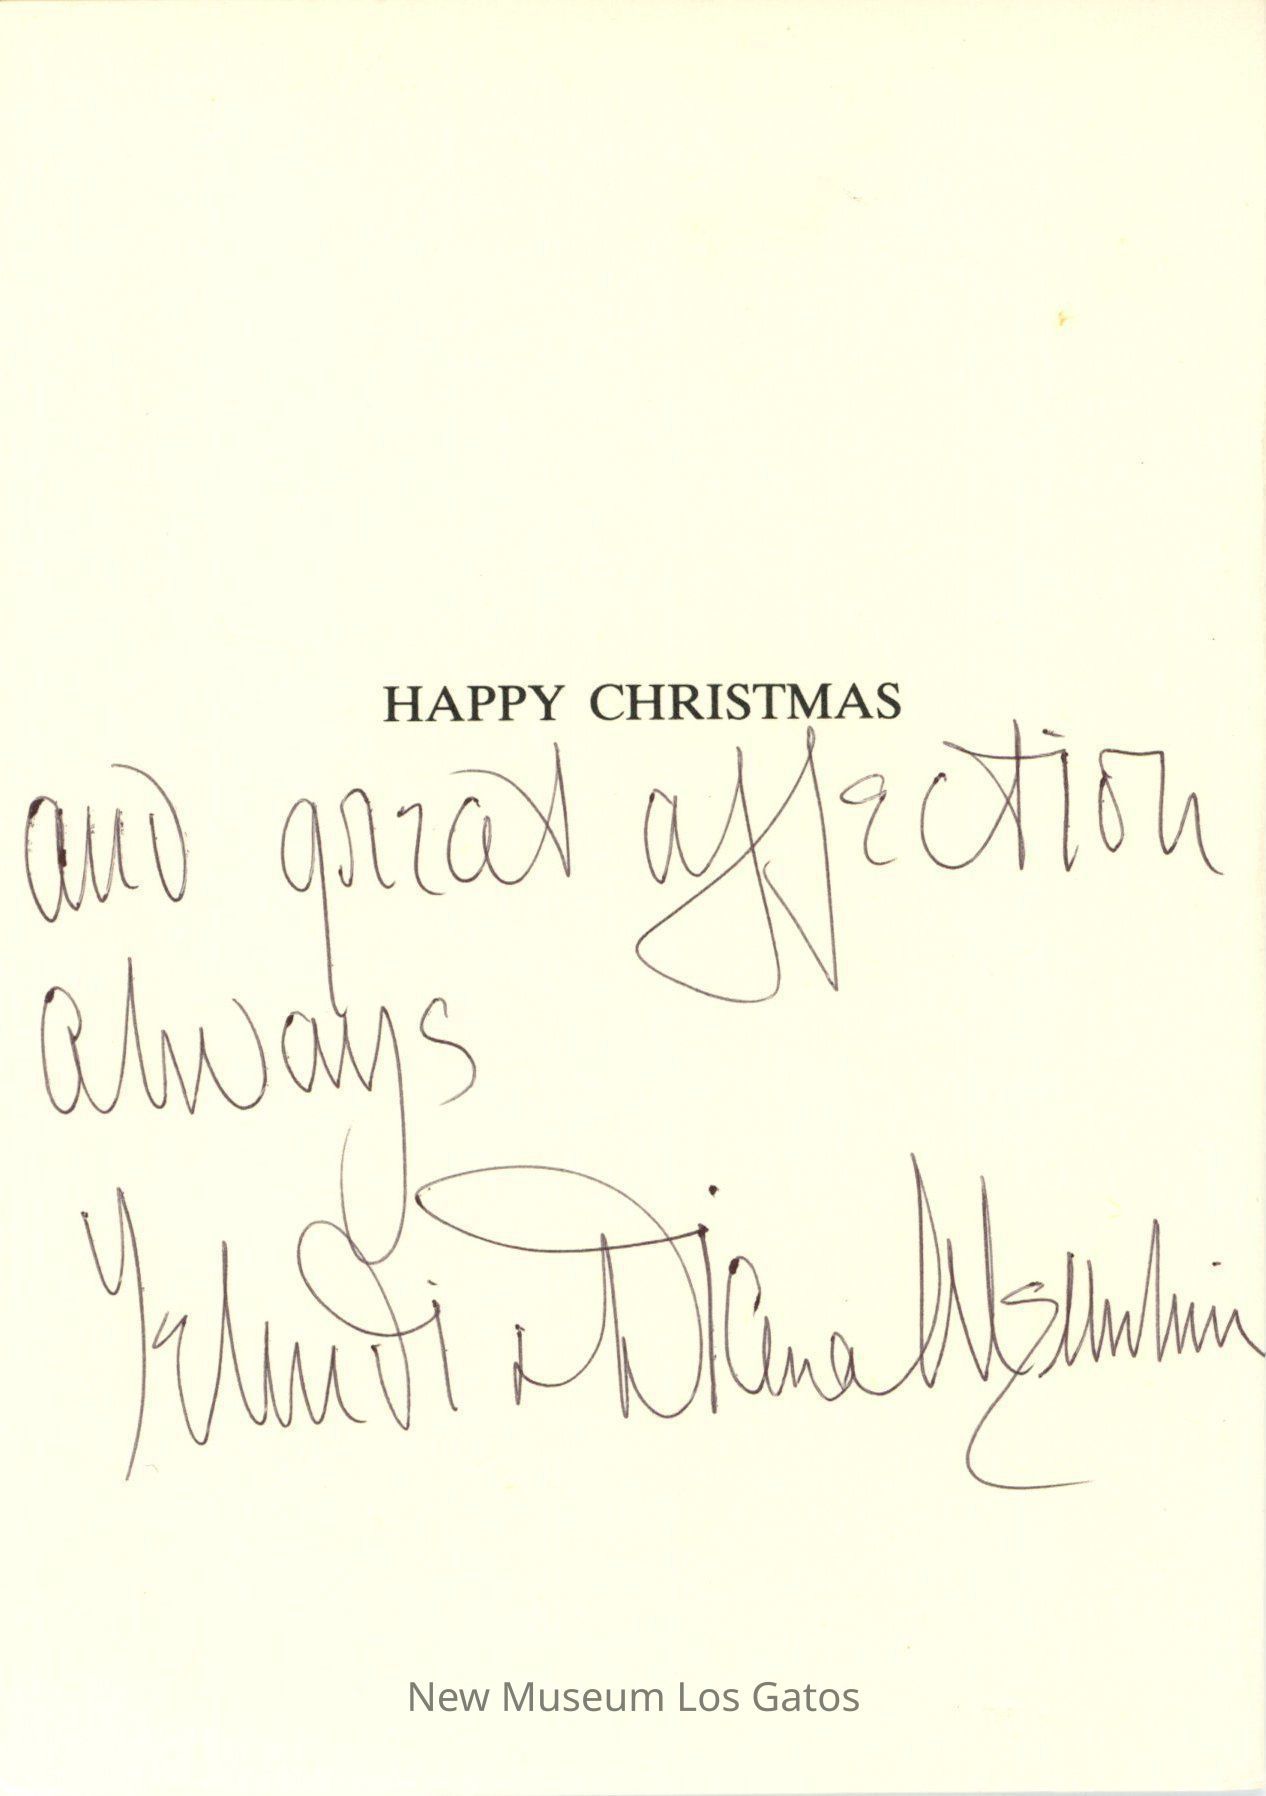 HAPPY CHRISTMAS
and great affection
always
Yehudi & Diana Menuhin
New Museum Los Gatos